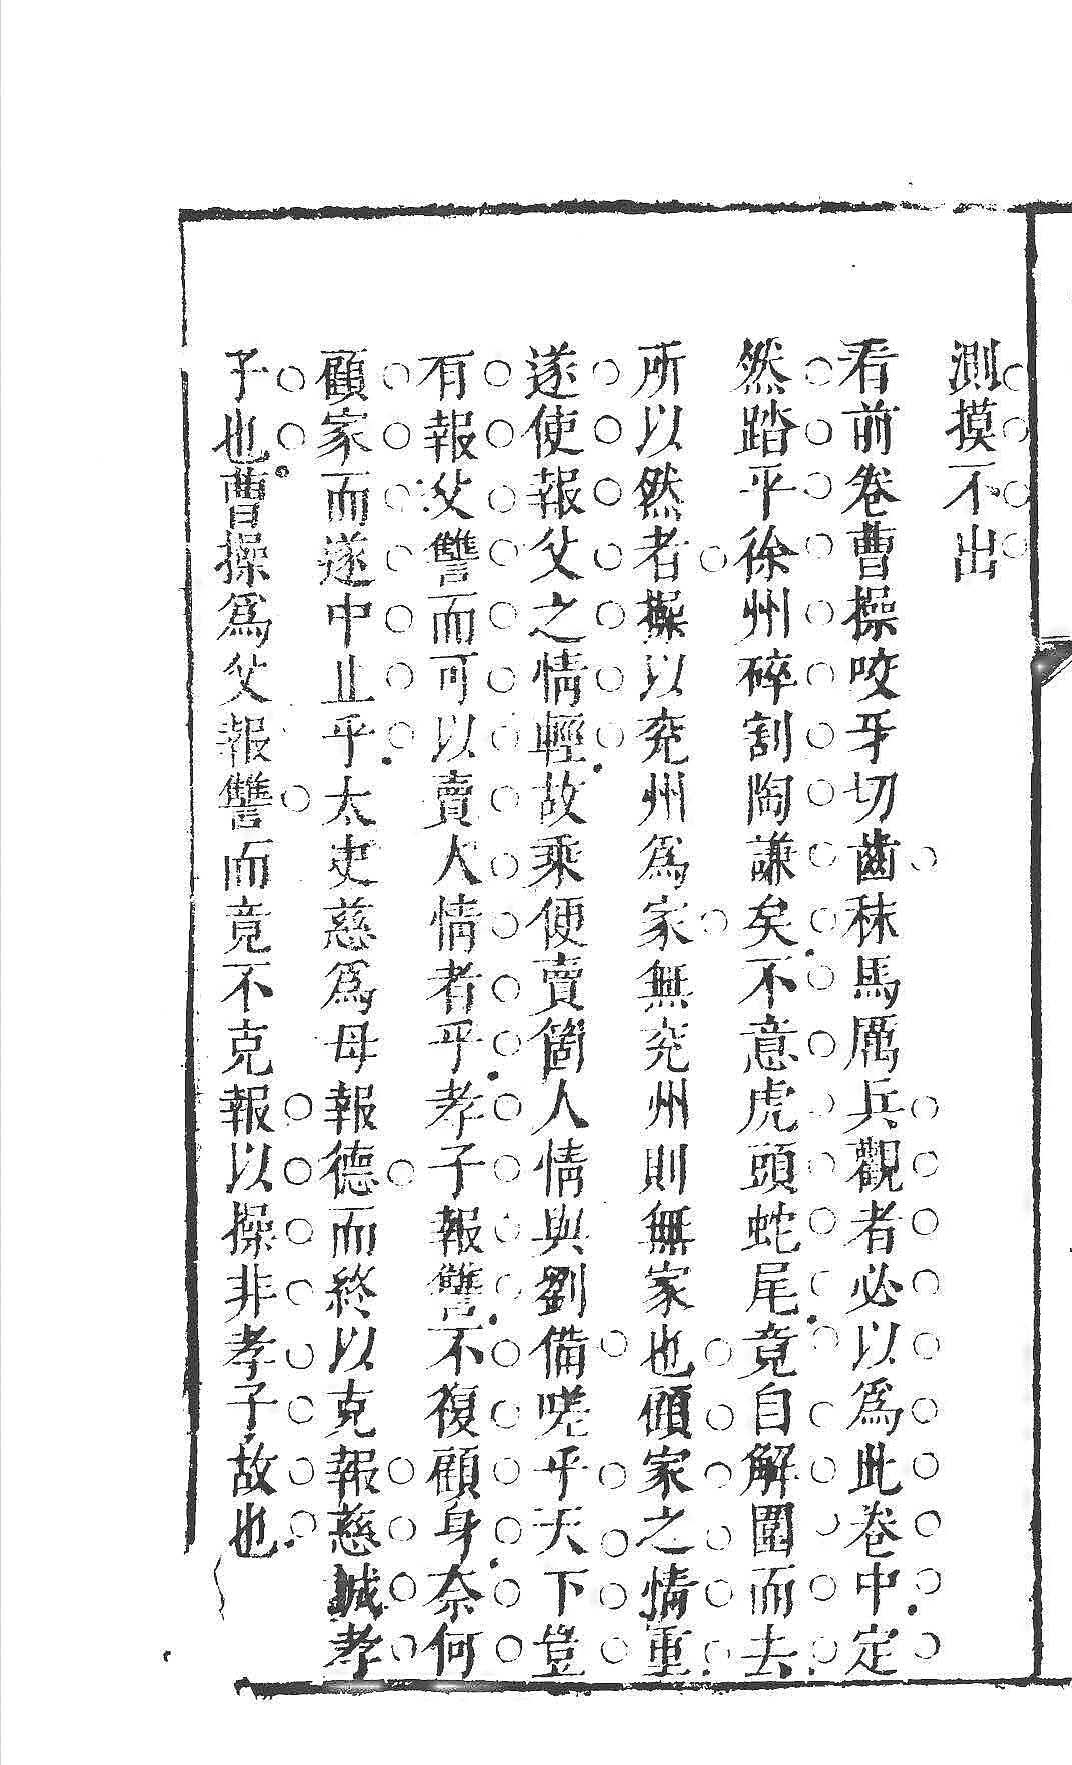 測摸不出
看前卷曹操咬牙切齒秣馬厲兵觀者必以爲此卷中定
然踏平徐州碎割陶謙矣不意虎頭蛇尾竟自解圍而去
所以然者操以兗州爲家無兗州則無家也顧家之情重
遂使報父之情輕故乘便賣箇人情與劉備嗟乎天下豈
有報父讐而可以賣人情者乎孝子報讐不復顧身奈何
顧家而遂中止乎太史慈爲母報德而終以克報慈誠孝
子也曹操爲父報讐而竟不克報以操非孝子故也